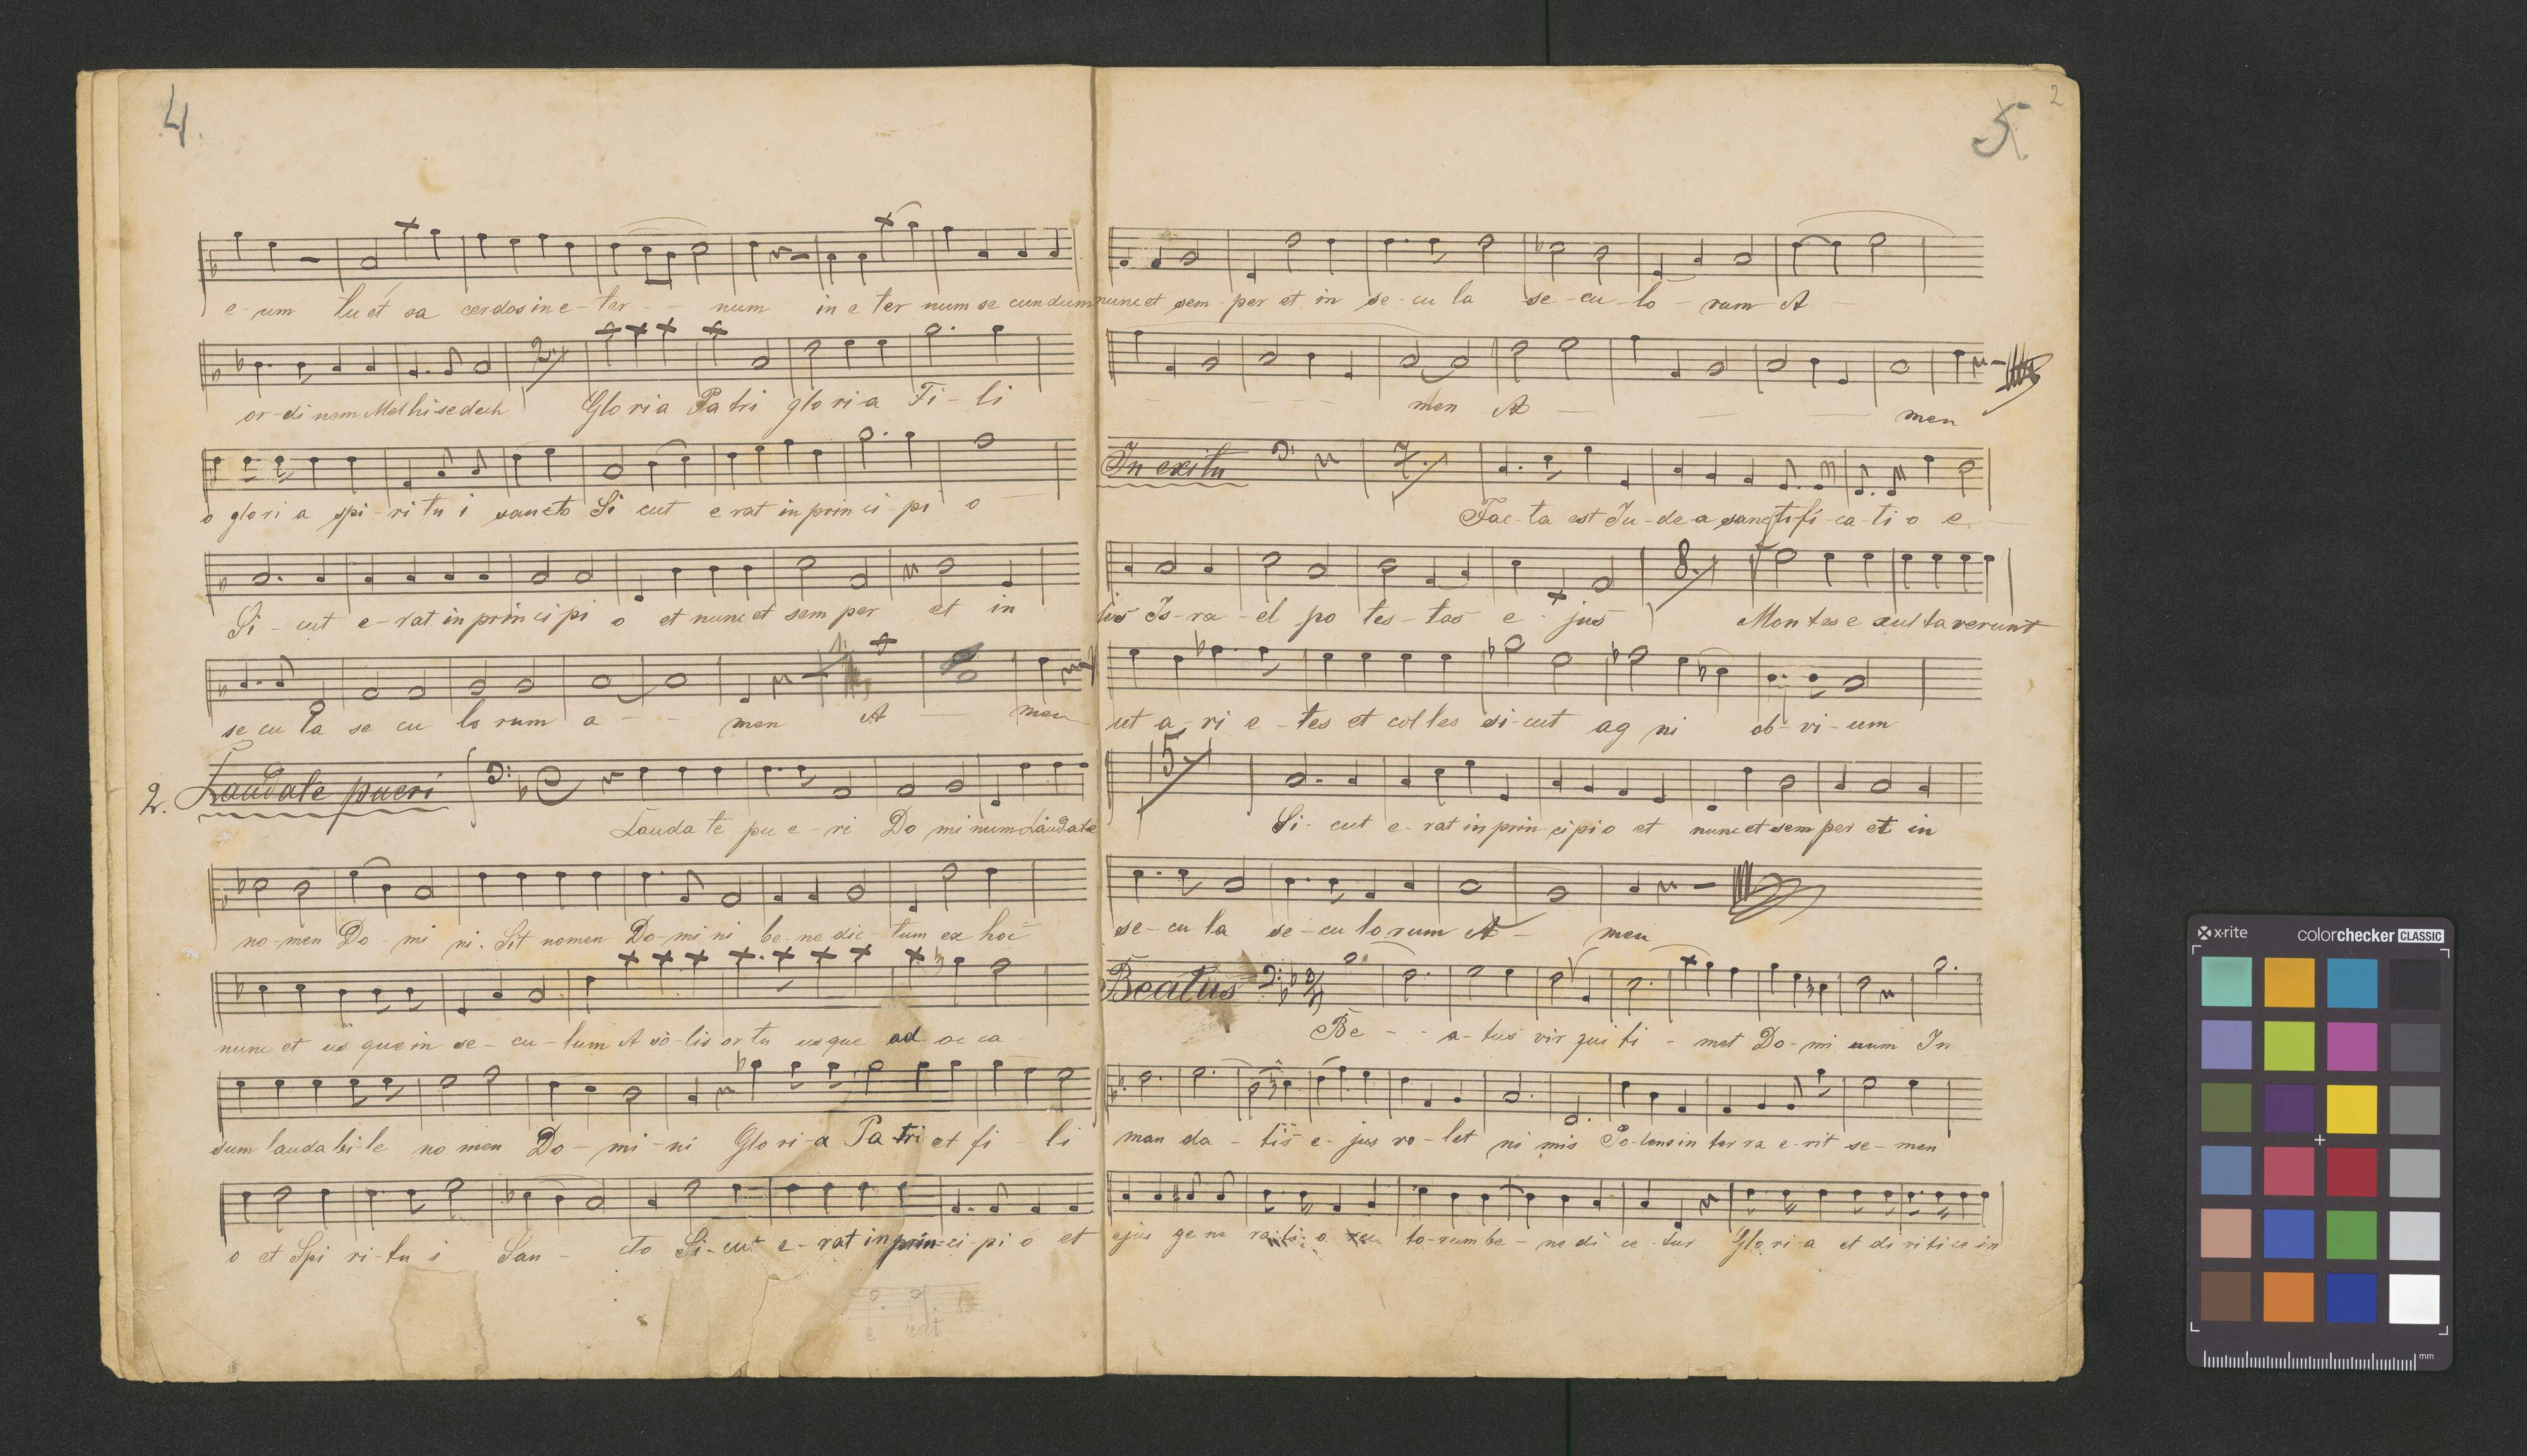 4.
e-um tu et sa cerdos in e-ter - - num in e ter num se cundum
or-di nem Melhisedech 2. Gloria Patri gloria Fi-li
o glori a spi-ri tu i sancto Si cut e rat in prin ci-pi o
Si-cut e-rat in prin ci pi o et nunc et sem per et in
se cu la se cu lo rum a - - men A - men
2. Laudate pueri Lauda te pu e-ri Do mi num Laudate
no-men Do-mi ni. Sit nomen Do-mi ni be-ne dic-tum ex hoc
nunc et us que in se-cu-lum A so-lis or tu usque ad oc ca
sum lauda bi-le no men Do-mi-ni Glo ri-a Pa tri et fi-li
o et Spi ri-tu i San-cto Si-cut e-rat in prin-ci pi o et
e rat
5. 2
nunc et sem-per et in se-cu la se-cu-lo-rum A -
- - - men A - - - men
In exitu 7. Fac-ta est Ju-de-a sanctifi-ca-ti o e -
ius Is-ra-el po tes-tas e-jus 8. Mon tes e xul ta verunt
ut a-ri e-tes et col les si-cut ag ni ob-vi-um
15 Si-cut e-rat in prin cipi o et nunc et sem per et in
se-cu la se-cu lo rum A - men
Beatus 3/4 Be - - a-tus vir qui ti-met Do-mi num In
man da-tis e-jus vo-let ni mis Po-tens in ter ra e-rit se-men
ejus ge ne ra-ti-o rec to-rum be-ne di-ce-tur Glo ri-a et di vi ti ae in
x-rite colorchecker CLASSIC
mm